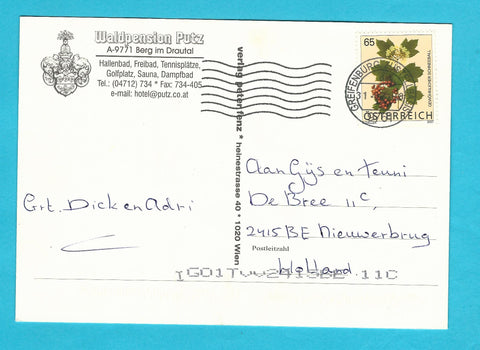 Waldpension Putz
A-9771 Berg im Drautal
Hallenbad, Freibad, Tennisplätze,
Golfplatz, Sauna, Dampfbad
Tel.: (04712) 734 * Fax: 734-405
e-mail: hotel@putz.co.at
verlag peter lanz * heinestrasse 40 * 1020 Wien
65
GREIFENBURG
ÖSTERREICH
Grt. Dick en Adri
Aan Gijs en Teuni
De Bree 11c,
2415 BE Nieuwerbrug
Postleitzahl
Holland
11C